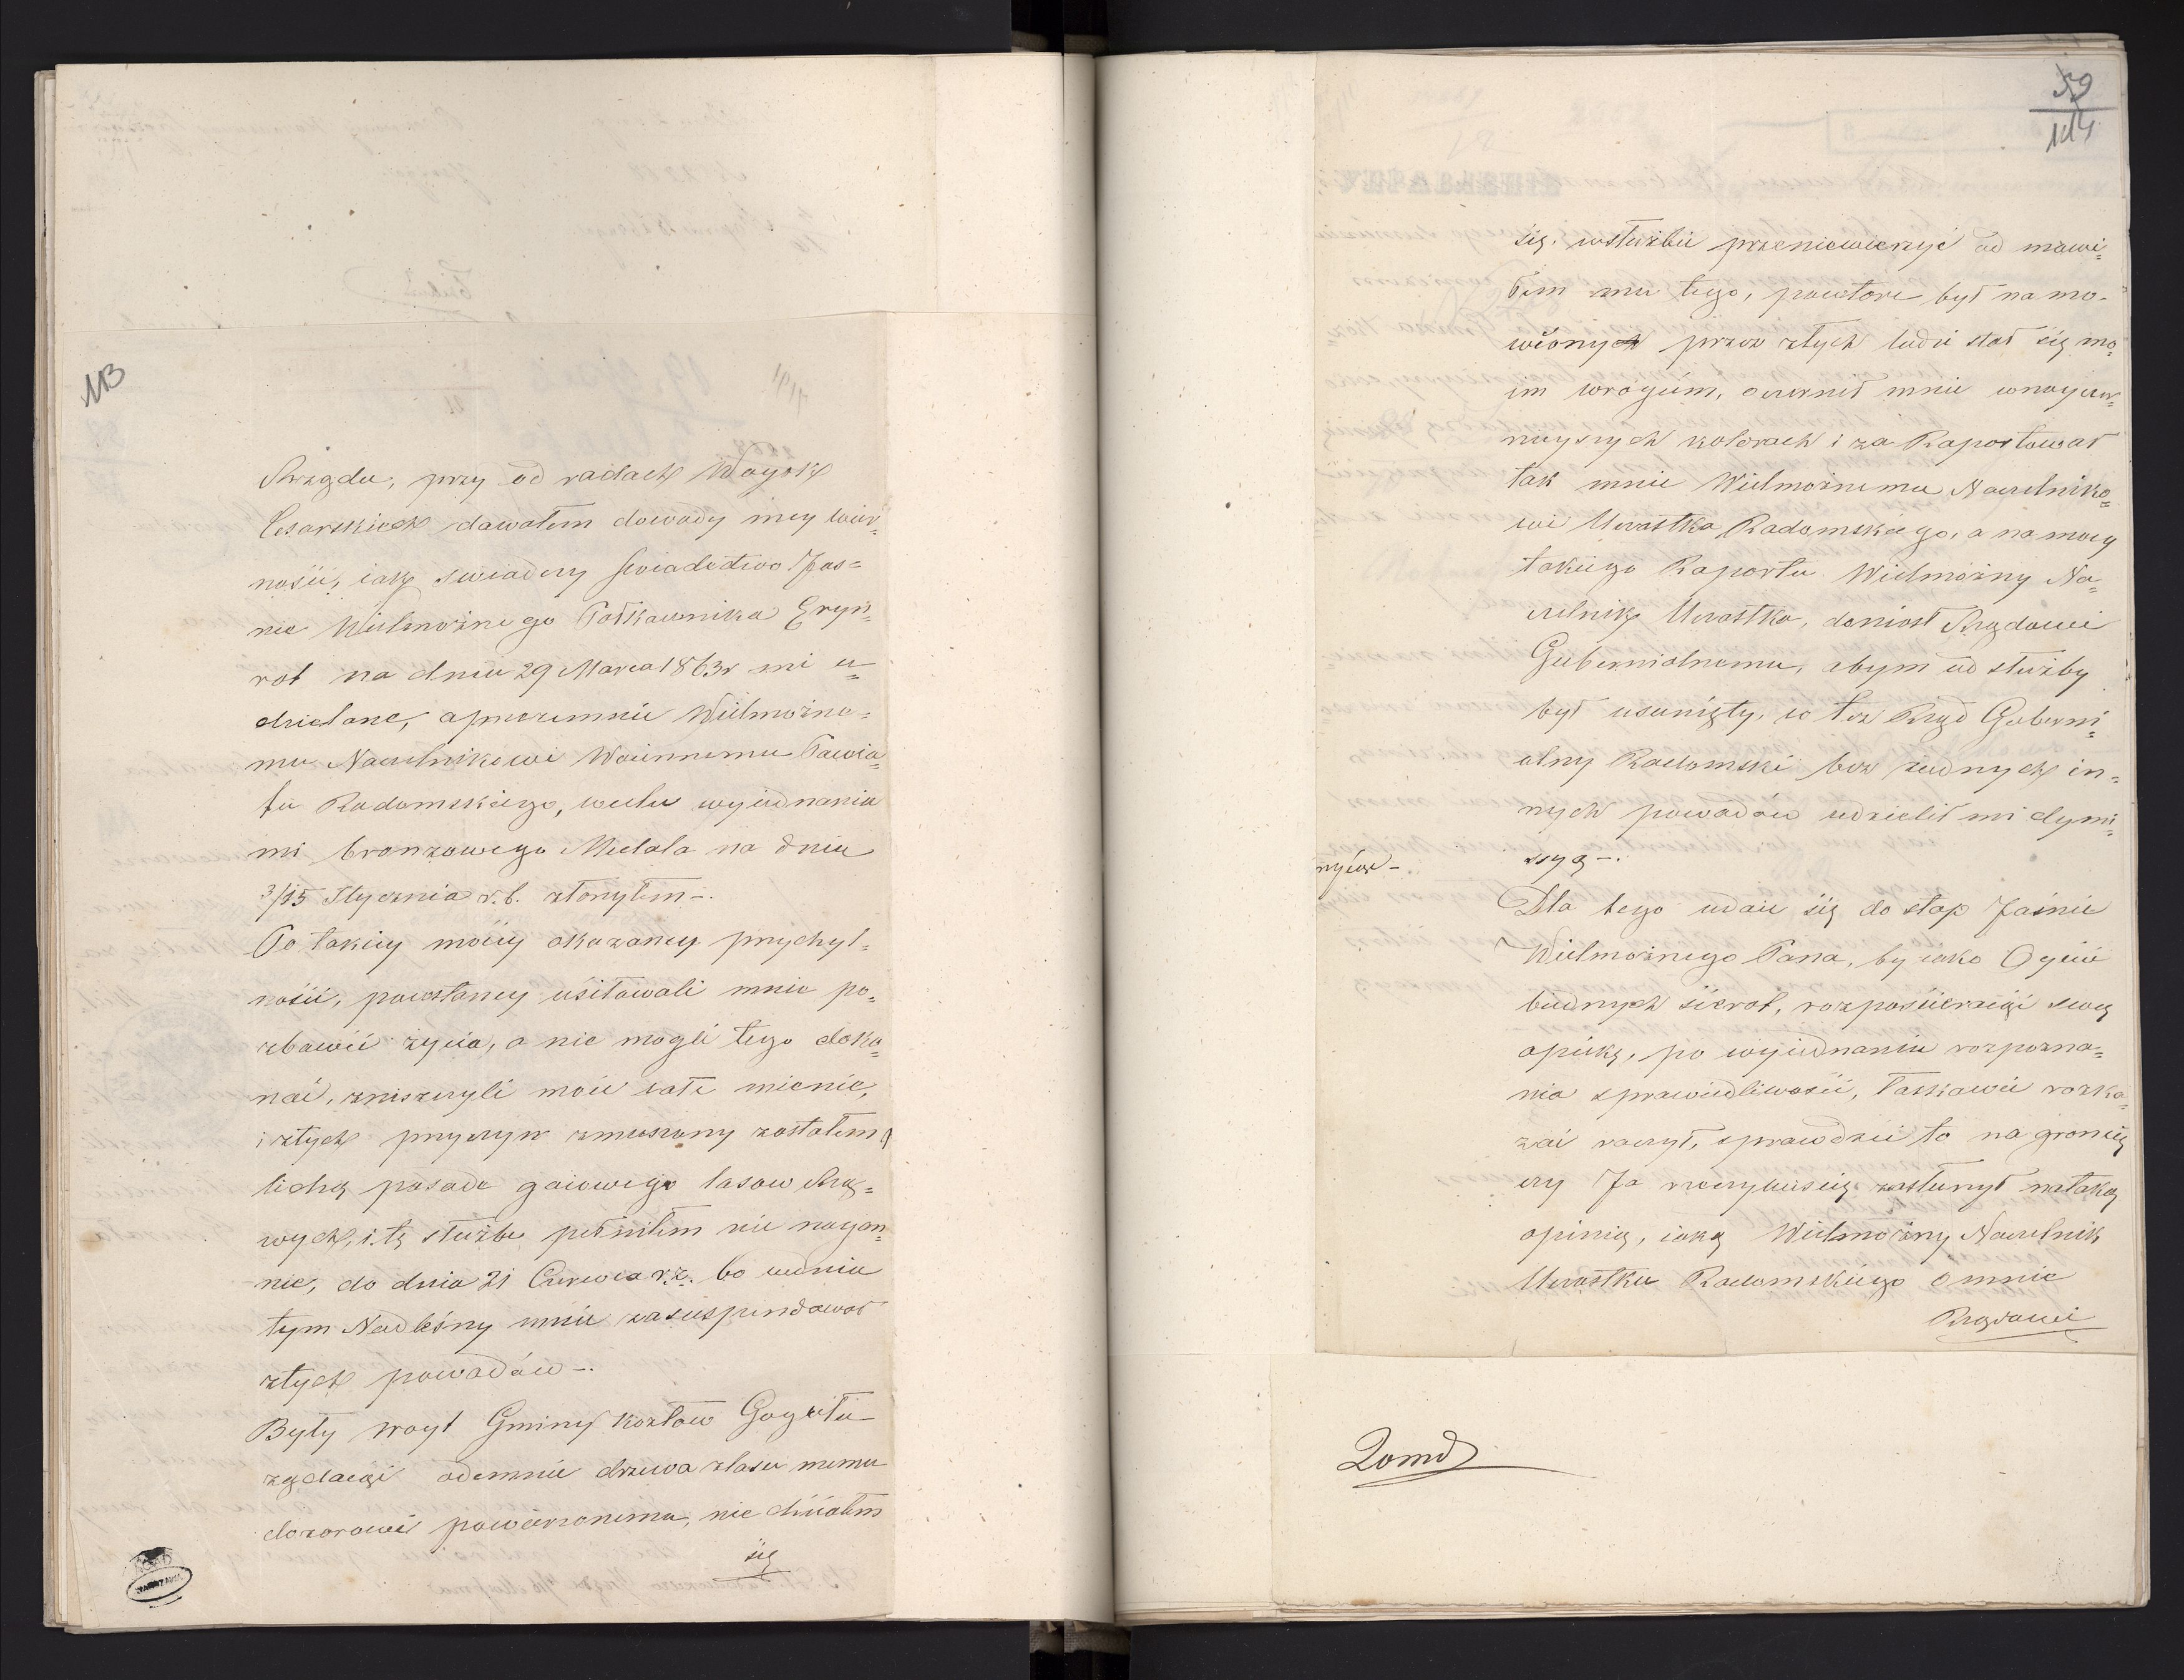 113
Rządu, przy od radach Woysk
Cesarskich dawałem dowody mey wier=
nośii, iak swiadczy swiadectwo Jas=
nie Wielmożnego Połkownika Eryn=
rot na dniu 29 Marca 1863r mi u=
dzielane, a przezemnie Wielmożne=
mu Naczelnikowi Woiennemu Powia=
tu Radomskiego, wcelu wyiednania
mi bronzowego Medala na dniu
3/15 Stycznia r.b. złożyłem -.
Po takiey moiey okazaney przychyl=
nośii, powstańcy usiłowali mnie po=
zbawić życia, a nie mogli tego doko=
nać, zniszczyli moie całe mienie,
i ztych przyczyn zmuszony zostałem
lichą posade gaiowego lasow Rzą=
wych, i tę służbe pełniłem nie nagan=
nie, do dnia 21 Czerwca r.z. bo wdniu
tym Nadleśny mnie zasuspendował
ztych powodów -.
Były woyt Gminy Kozłow Goguitu
ządaiąi odemnie drzewa zlasu memu
dozorowi powierzonemu, nie chiiałem
się
59
114
się wsłużbie przeniewierzyć od mawi=
łem mu tego, powtore był namo-
wiony przez złych ludzi stał się mo=
im wrogiem, oczernił mnie wnayczar=
nieyszych kolorach i za Raportował
tak mnie Wielmożnemu Naczelniko=
wi Uczastka Radomskiego, a na mocy
takiego Raportu Wielmożny Na=
czelnik Uczastka, doniosł Rządowi
Gubernialnemu, abym od służby
był usunięty, co też Rząd Guberni=
alny Radomski bez żadnych in=
nych powodów udzielił mi dymi=
ssyą -.
Dla tego udaie się do stop Jaśnie
Wielmożnego Pana, by iako Oyciec
biednych sierot, rozposiieraiąi swą
opiekę, po wyiednaniu rozpozna=
nia sprawiedliwośii, łaskawie rozka=
zai raczył, sprawdzii to na gronię
czy Ja rzeczywiisię zasłużył na taką
opinią, iaką Wielmożny Naczelnik
Uczastku Radomskiego o mnie
Rządowi